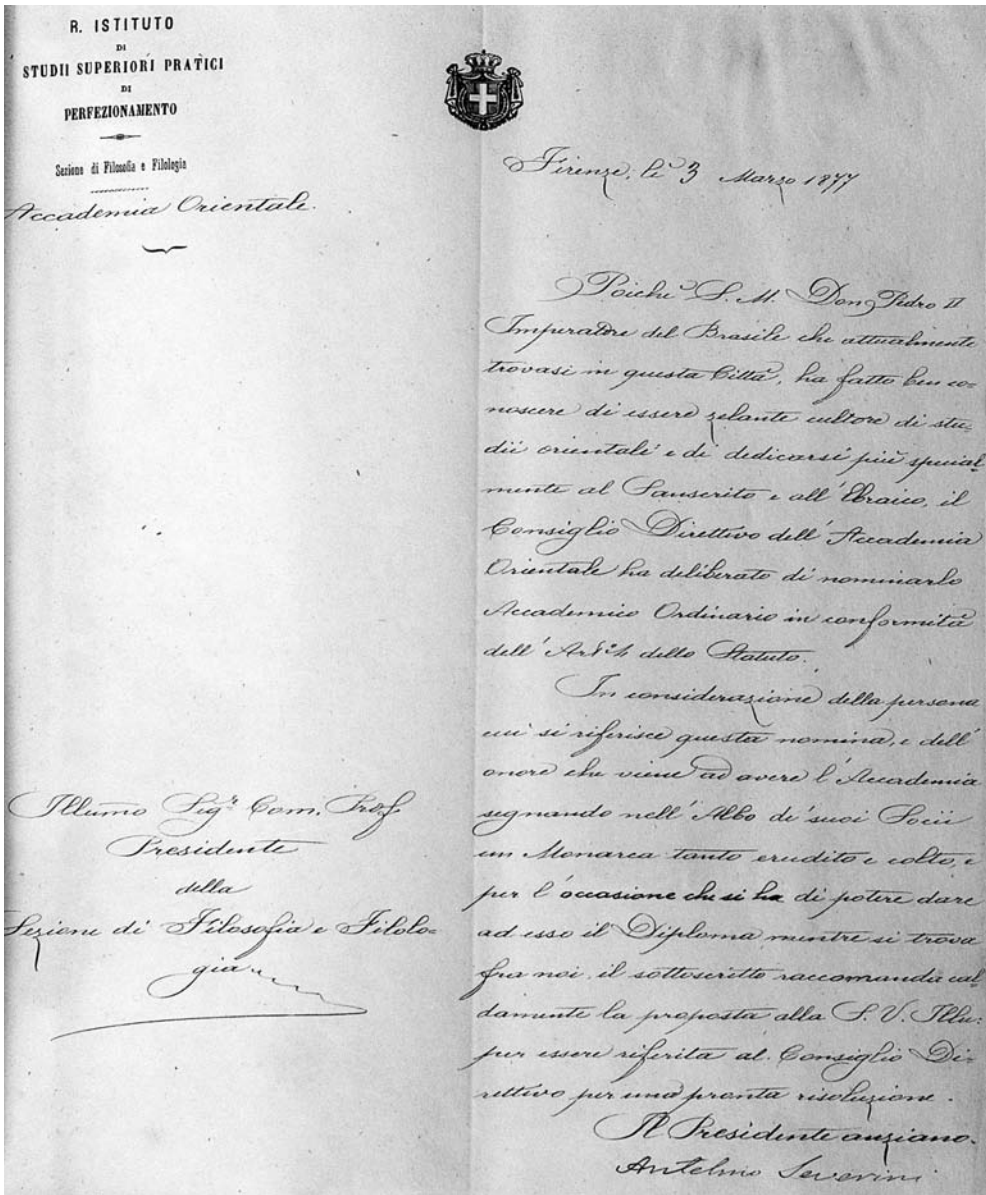 R. ISTITUTO
DI
STUDII SUPERIORI PRATICI
DI
PERFEZIONAMENTO
Sezione di Filosofia e Filologia
Accademia Orientale.
Firenze, li 3 Marzo 1877
Poiché S. M. Don Pedro II
Imperatore del Brasile che attualmente
trovasi in questa Città, ha fatto ben co=
noscere di essere zelante cultore di stu=
dii orientali e di dedicarsi più special=
mente al Sanscrito e all' Ebraico, il
Consiglio Direttivo dell' Accademia
Orientale ha deliberato di nominarlo
Accademico Ordinario in conformità
dell' dello Statuto.
In considerazione della persona
cui si riferisce questa nomina, e dell'
onore che viene ad avere l' Accademia
segnando nell' Albo de' suoi Socii
un Monarca tanto erudito e colto, e
per l' occasione che si ha di potere dare
ad esso il Diploma mentre si trova
fra noi, il sottoscritto raccomanda cal=
damente la proposta alla S. V. Illu:
per essere riferita al Consiglio Di=
rettivo per una pronta risoluzione.
Il Presidente anziano.
Antelmo Severini
Illumo Sigr. Com. Prof.
Presidente
della
Sezione di Filosofia e Filolo=
gia